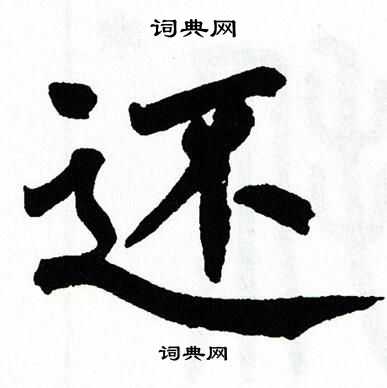 词典网
还
词典网